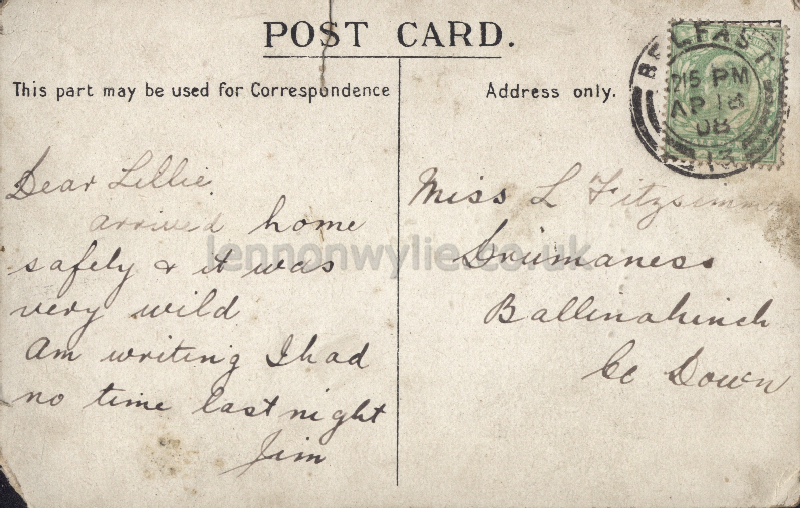 POST CARD.
This part may be used for Correspondence
Address only.
BELFAST
7 15 PM
AP 18
08
13
Dear Lillie
arrived home
safely & it was
very wild
Am writing I had
no time last night
Jim
Miss L Fitzsimm
Drumaness
Ballinahinch
Co Down
lennonwylie.co.uk